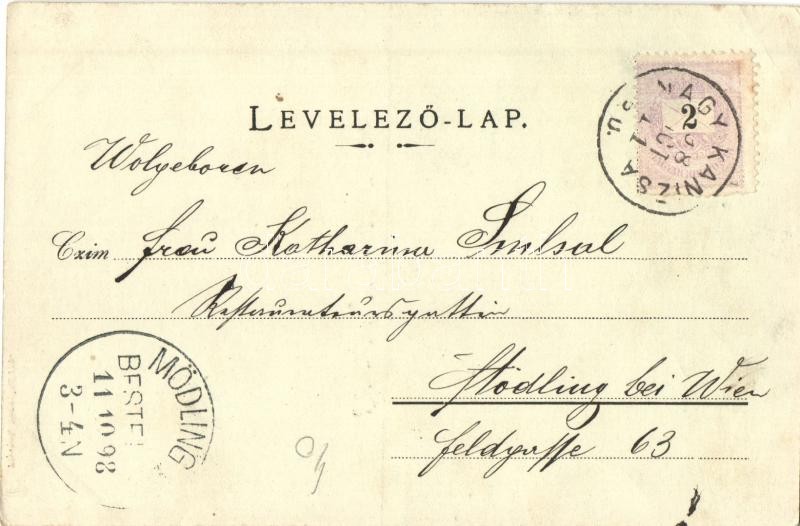 LEVELEZŐ-LAP.
2
NAGY-KANIZSA
Wolgeboren
Czim frau Katharina
Restaurateursgattin
Mödling bei Wien
feldgasse 63
MÖDLING
BESTELLT
11 10 98
3-4N